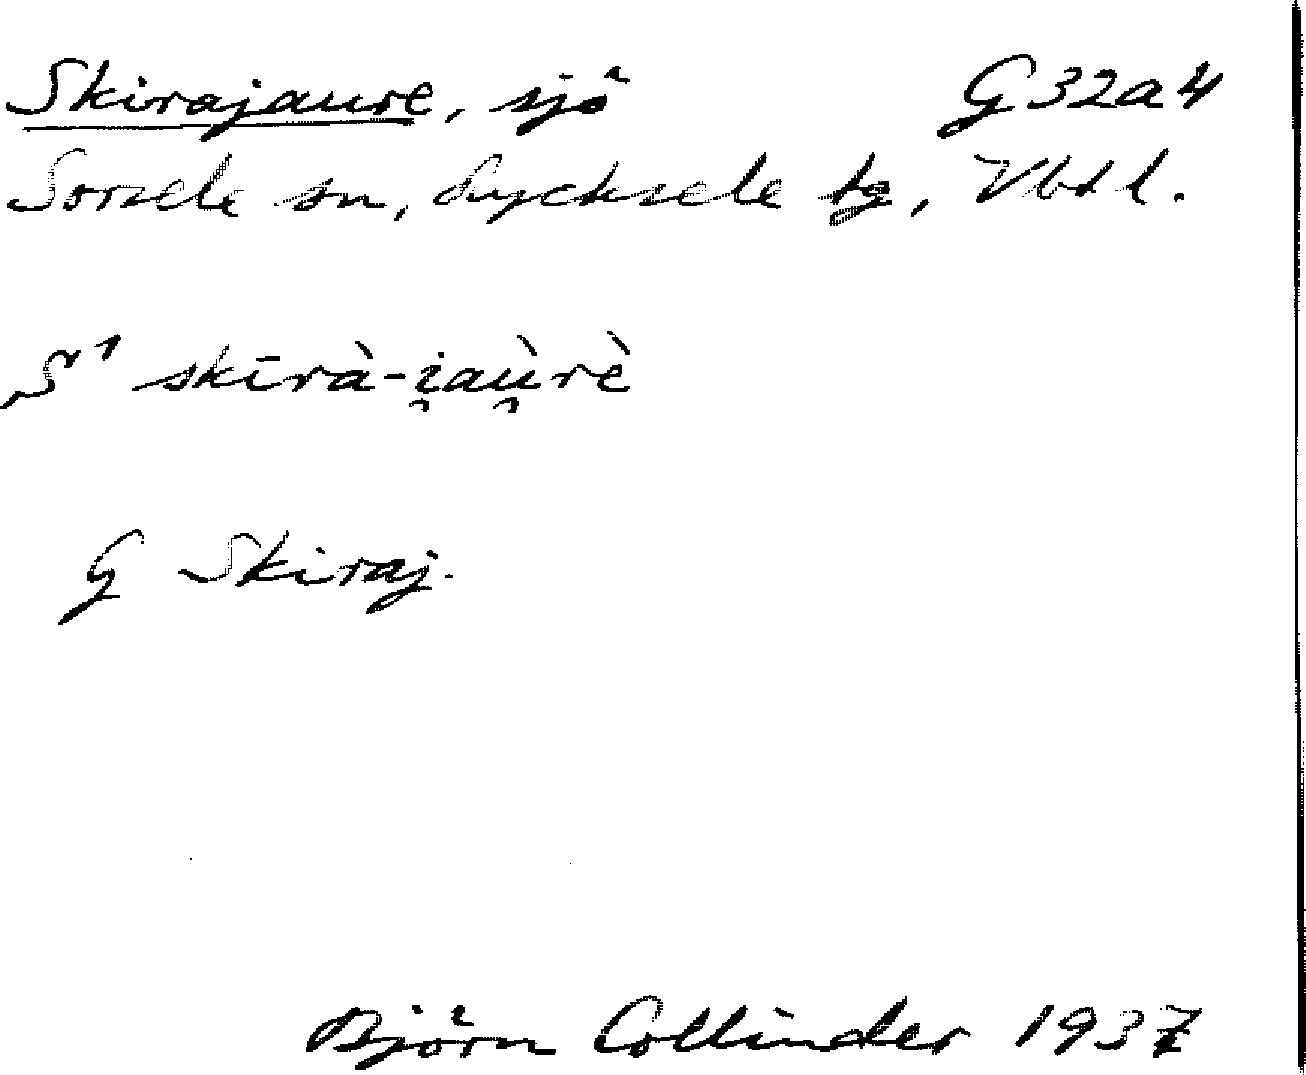 Skirajaure, sjö G32a4
Sorsele sn, Lycksele tg, Vbtl.
S¹ skīrà-i̯aù̯rè
G Skiraj.
Björn Collinder 1937